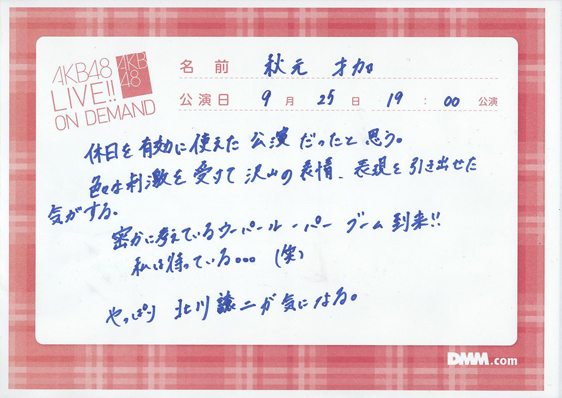 AKB48
LIVE!!
ON DEMAND
AKB
48
名前 秋元 才加
公演日 9月25日 19:00 公演
休日を有効に使えた公演だったと思う。
色々な刺激を受けて沢山の表情、表現を引き出せた
気がする。
密かに考えているウーパールーパーブーム到来!!
私は待っている。。。(笑)
やっぱり 北川譲二が気になる。
DMM.com